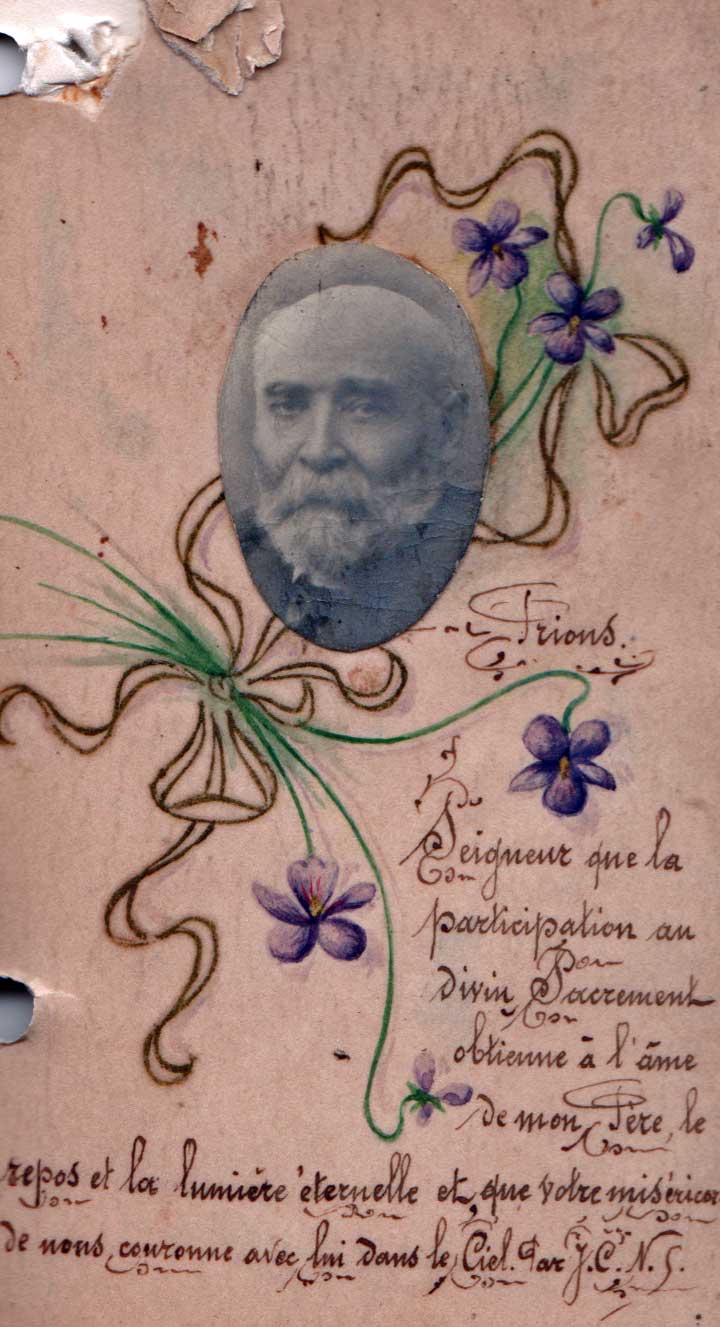 Prions.
Seigneur que la
participation au
divin Sacrement
obtienne à l'âme
de mon Père, le
repos et la lumière éternelle et que votre miséricor
de nous couronne avec lui dans le Ciel. Par J.C.N.S.